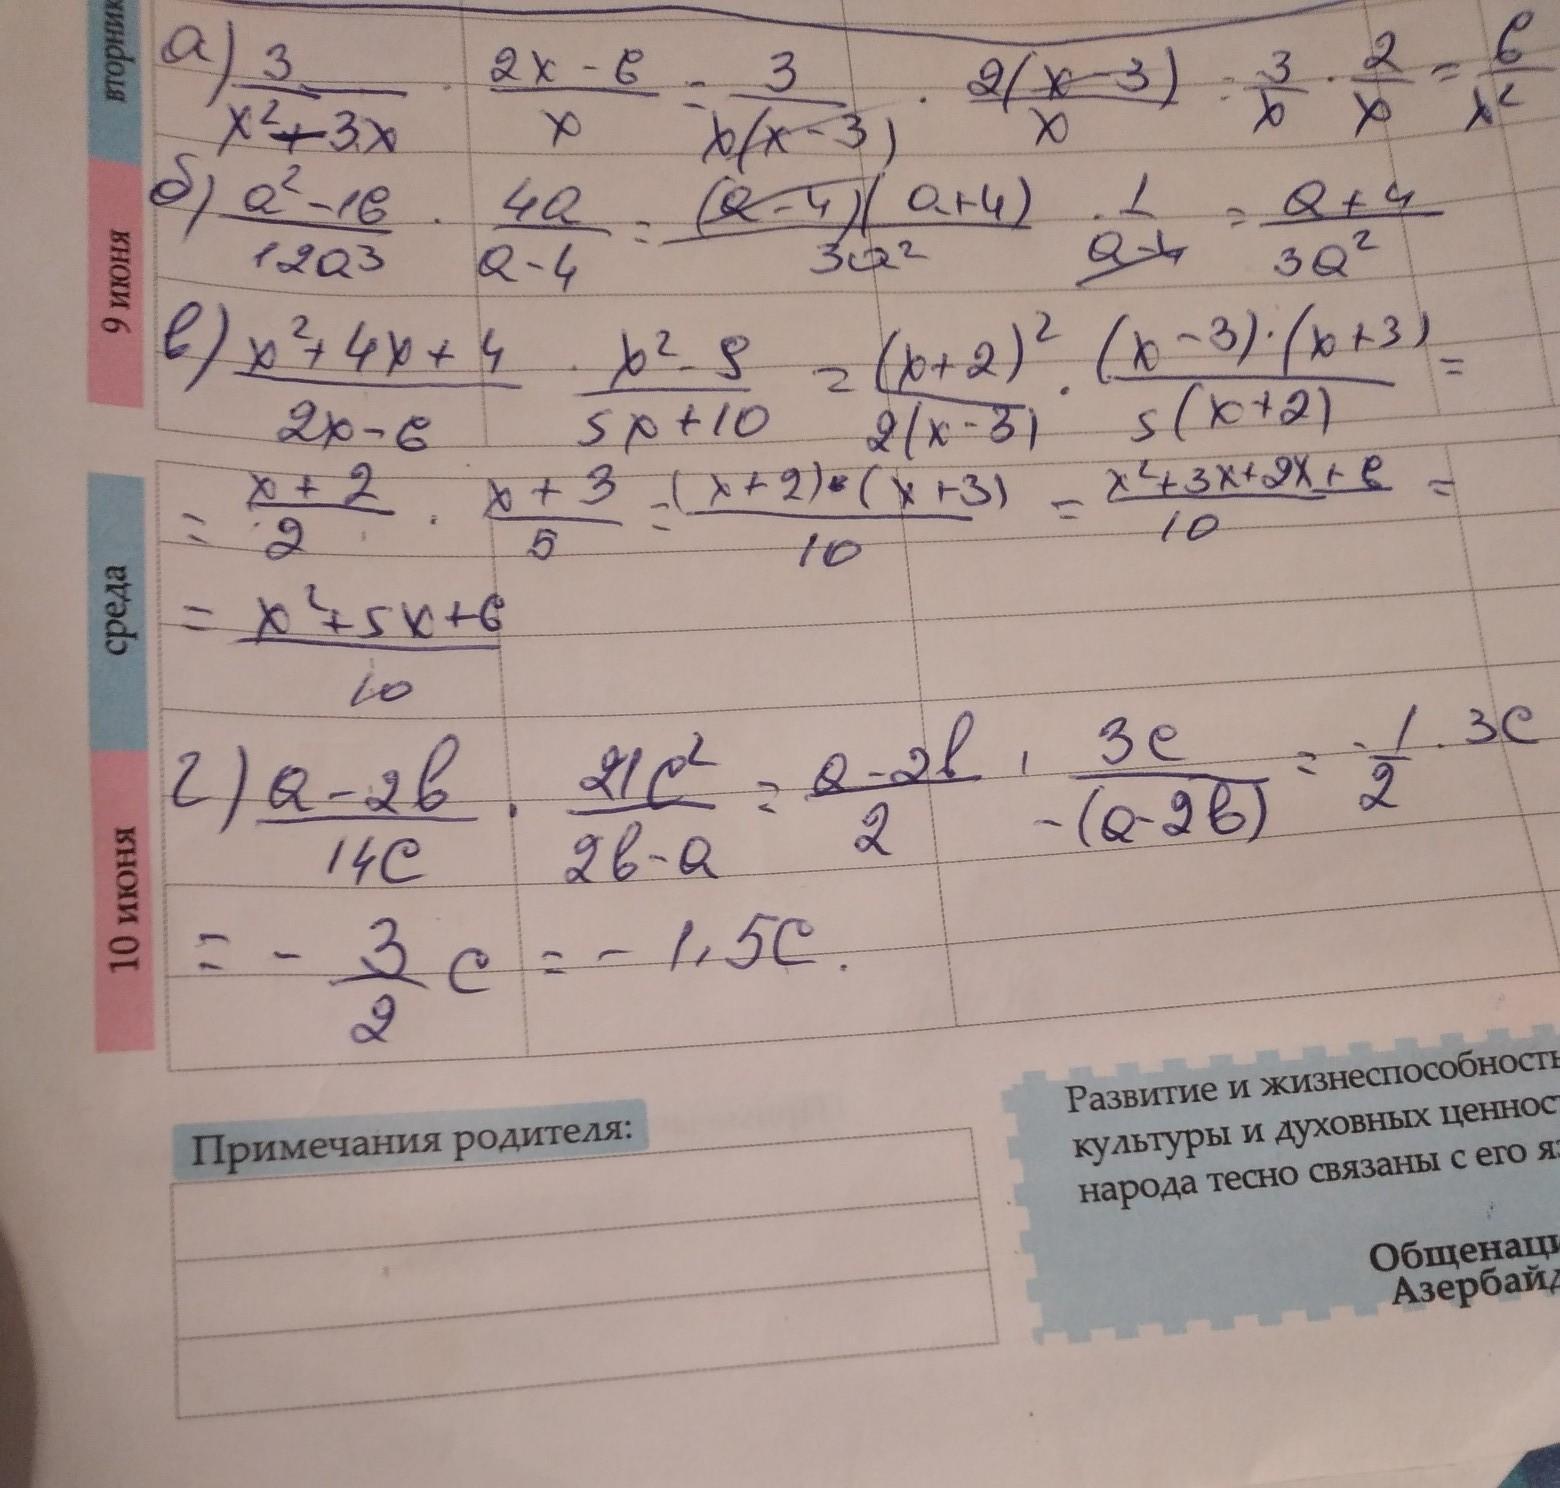 вторник
а) 3/(x²+3x) · (2x-6)/x = 3/(x(x-3)) · 2(x-3)/x = 3/x · 2/x = 6/x²
9 июня
б) (a²-16)/(12a3) · 4a/(a-4) = (a-4)(a+4)/(3a²) · 1/(a-4) = (a+4)/(3a²)
в) (x²+4x+4)/(2x-6) · (x²-9)/(5x+10) = (x+2)²/(2(x-3)) · (x-3)·(x+3)/(5(x+2)) =
среда
= (x+2)/2 · (x+3)/5 = (x+2)·(x+3)/10 = (x²+3x+2x+6)/10 =
= (x²+5x+6)/10
10 июня
г) (a-2b)/(14c) · 21c²/(2b-a) = (a-2b)/2 · 3c/(-(a-2b)) = -1/2 · 3c
= - 3/2 c = - 1,5c.
Примечания родителя:
Развитие и жизнеспособность
культуры и духовных
народа тесно связаны с его